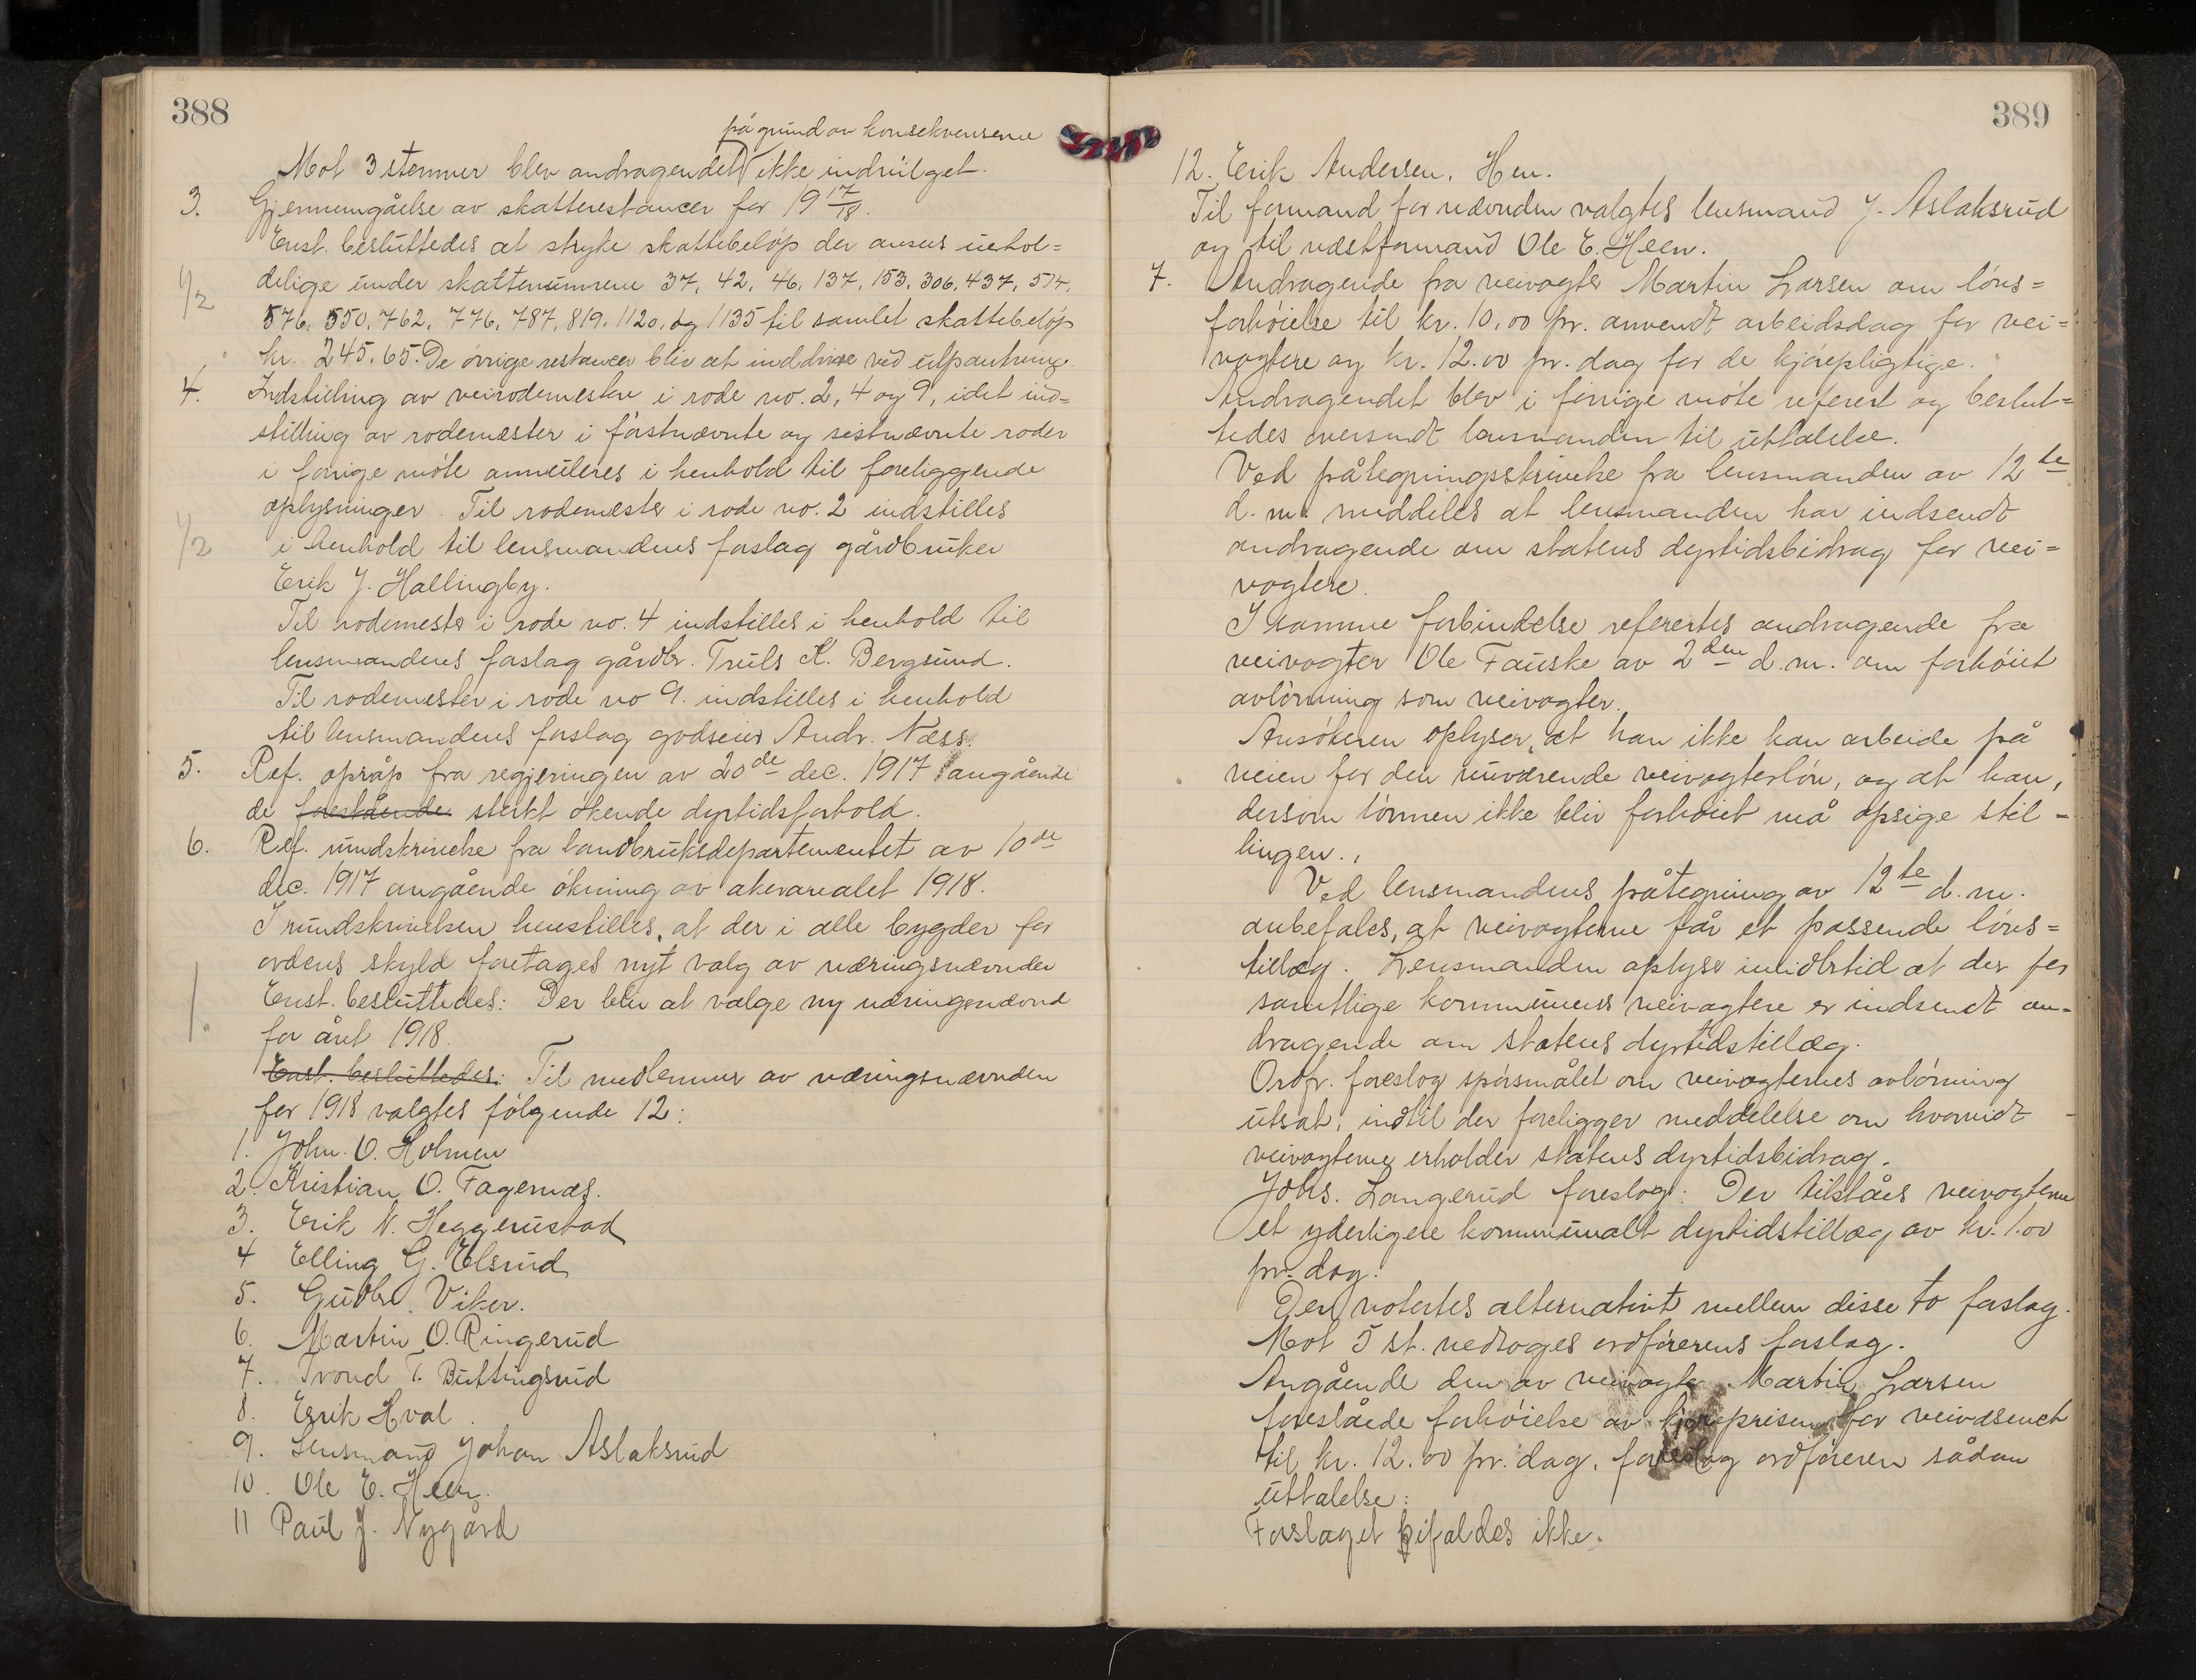 388
på grund av konsekvenserne
Mot 3 stemmer blev andragendet ikke indvilget.
3. Gjennemgåelse av skatterestancer for 19 17/18.
Enst. besluttedes at stryke skattebeløp der ansees uehol=
delige under skattenumrene 37, 42, 46, 137, 153, 306, 437, 574,
1/2
576, 550, 762, 776, 787, 819, 1120, og 1135 til samlet skattebeløp
kr. 245.65. De øvrige restancer blir at inddrive ved utpantning.
4. Indstilling av veirodemestere i rode no. 2, 4 og 9, idet ind=
stilling av rodemester i førstnævnte og sistnævnte roder
i forrige møte annulleres i henhold til foreliggende
oplysninger. Til rodemester i rode no. 2 indstilles
1/2
i henhold til lensmandens forslag gårdbruker
Erik J. Hallingby.
Til rodemester i rode no. 4 indstilles i henhold til
lensmandens forslag gårdbr. Truls K. Bergsund.
Til rodemester i rode no 9. indstilles i henhold
til lensmandens forslag godseier Andr. Næss.
5. Ref. opråp fra regjeringen av 20de dec. 1917 angående
de forestående sterkt økende dyrtidsforhold.
6. Ref. rundskrivelse fra landbruksdepartementet av 10de
dec. 1917 angående økning av akerarealet 1918.
I rundskrivelsen henstilles, at der i alle bygder for
ordens skyld foretages nyt valg av næringsnævnder
Enst. besluttedes: Der blir at vælge ny næringsnævnd
1.
for året 1918.
Enst. besluttedes: Til medlemmer av næringsnævnden
for 1918 valgtes følgende 12:
1. John. O. Holmen
2. Kristian O. Fagernæs.
3. Erik N. Heggerustad
4 Elling G. Elsrud
5. Gudbr. Viker.
6. Martin O. Ringerud
7. Trond T. Buttingsrud
8. Erik Hval.
9. Lensmand Johan Aslaksrud
10. Ole E. Heen.
11 Paul J. Nygård
389
12. Erik Andersen, Hen.
Til formand for nævnden valgtes lensmand J. Aslaksrud
og til næstformand Ole E. Heen.
7. Andragende fra veivogter Martin Larsen om løns=
forhøielse til kr. 10.00 pr. anvendt arbeidsdag for vei=
vogtere og kr. 12.00 pr. dag for de kjørepligtige.
Andragendet blev i forrige møte referert og beslut=
tedes oversendt lensmanden til uttalelse.
Ved påtegningsskrivelse fra lensmanden av 12te
d. m. meddeles at lensmanden har indsendt
andragende om statens dyrtidsbidrag for vei=
vogtere.
I samme forbindelse refertes andragende fra
veivogter Ole Fauske av 2den d.m. om forhøiet
avlønning som veivogter.
Ansøkeren oplyser, at han ikke kan arbeide på
veien for den nuværende veivogterløn, og at han,
dersom lønnen ikke blir forhøiet må opsige stil-
lingen.
Ved lensmandens påtegning av 12te d.m.
anbefales, at veivogterne får et passende løns=
tillæg. Lensmanden oplyser imidlertid at der for
samtlige kommunens veivogtere er indsendt an-
dragende om statens dyrtidstillæg.
Ordf. foreslog spørsmålet om veivogternes avlønning
utsat, indtil der foreligger meddelelse om hvorvidt
veivogterne erholder statens dyrtidsbidrag.
Johs. Langerud foreslog: Der tilståes veivogterne
et yderligere kommunalt dyrtidstillæg av kr. 1.00
pr. dag.
Der votertes alternativt mellem disse to forslag.
Mot 5 st. vedtoges ordførerens forslag.
Angående den av veivogter Martin Larsen
foreslåede forhøielse av kjøreprisen for veivæsenet
til kr. 12.00 pr. dag, foreslog ordføreren sådan
uttalelse:
Forslaget bifaldes ikke.